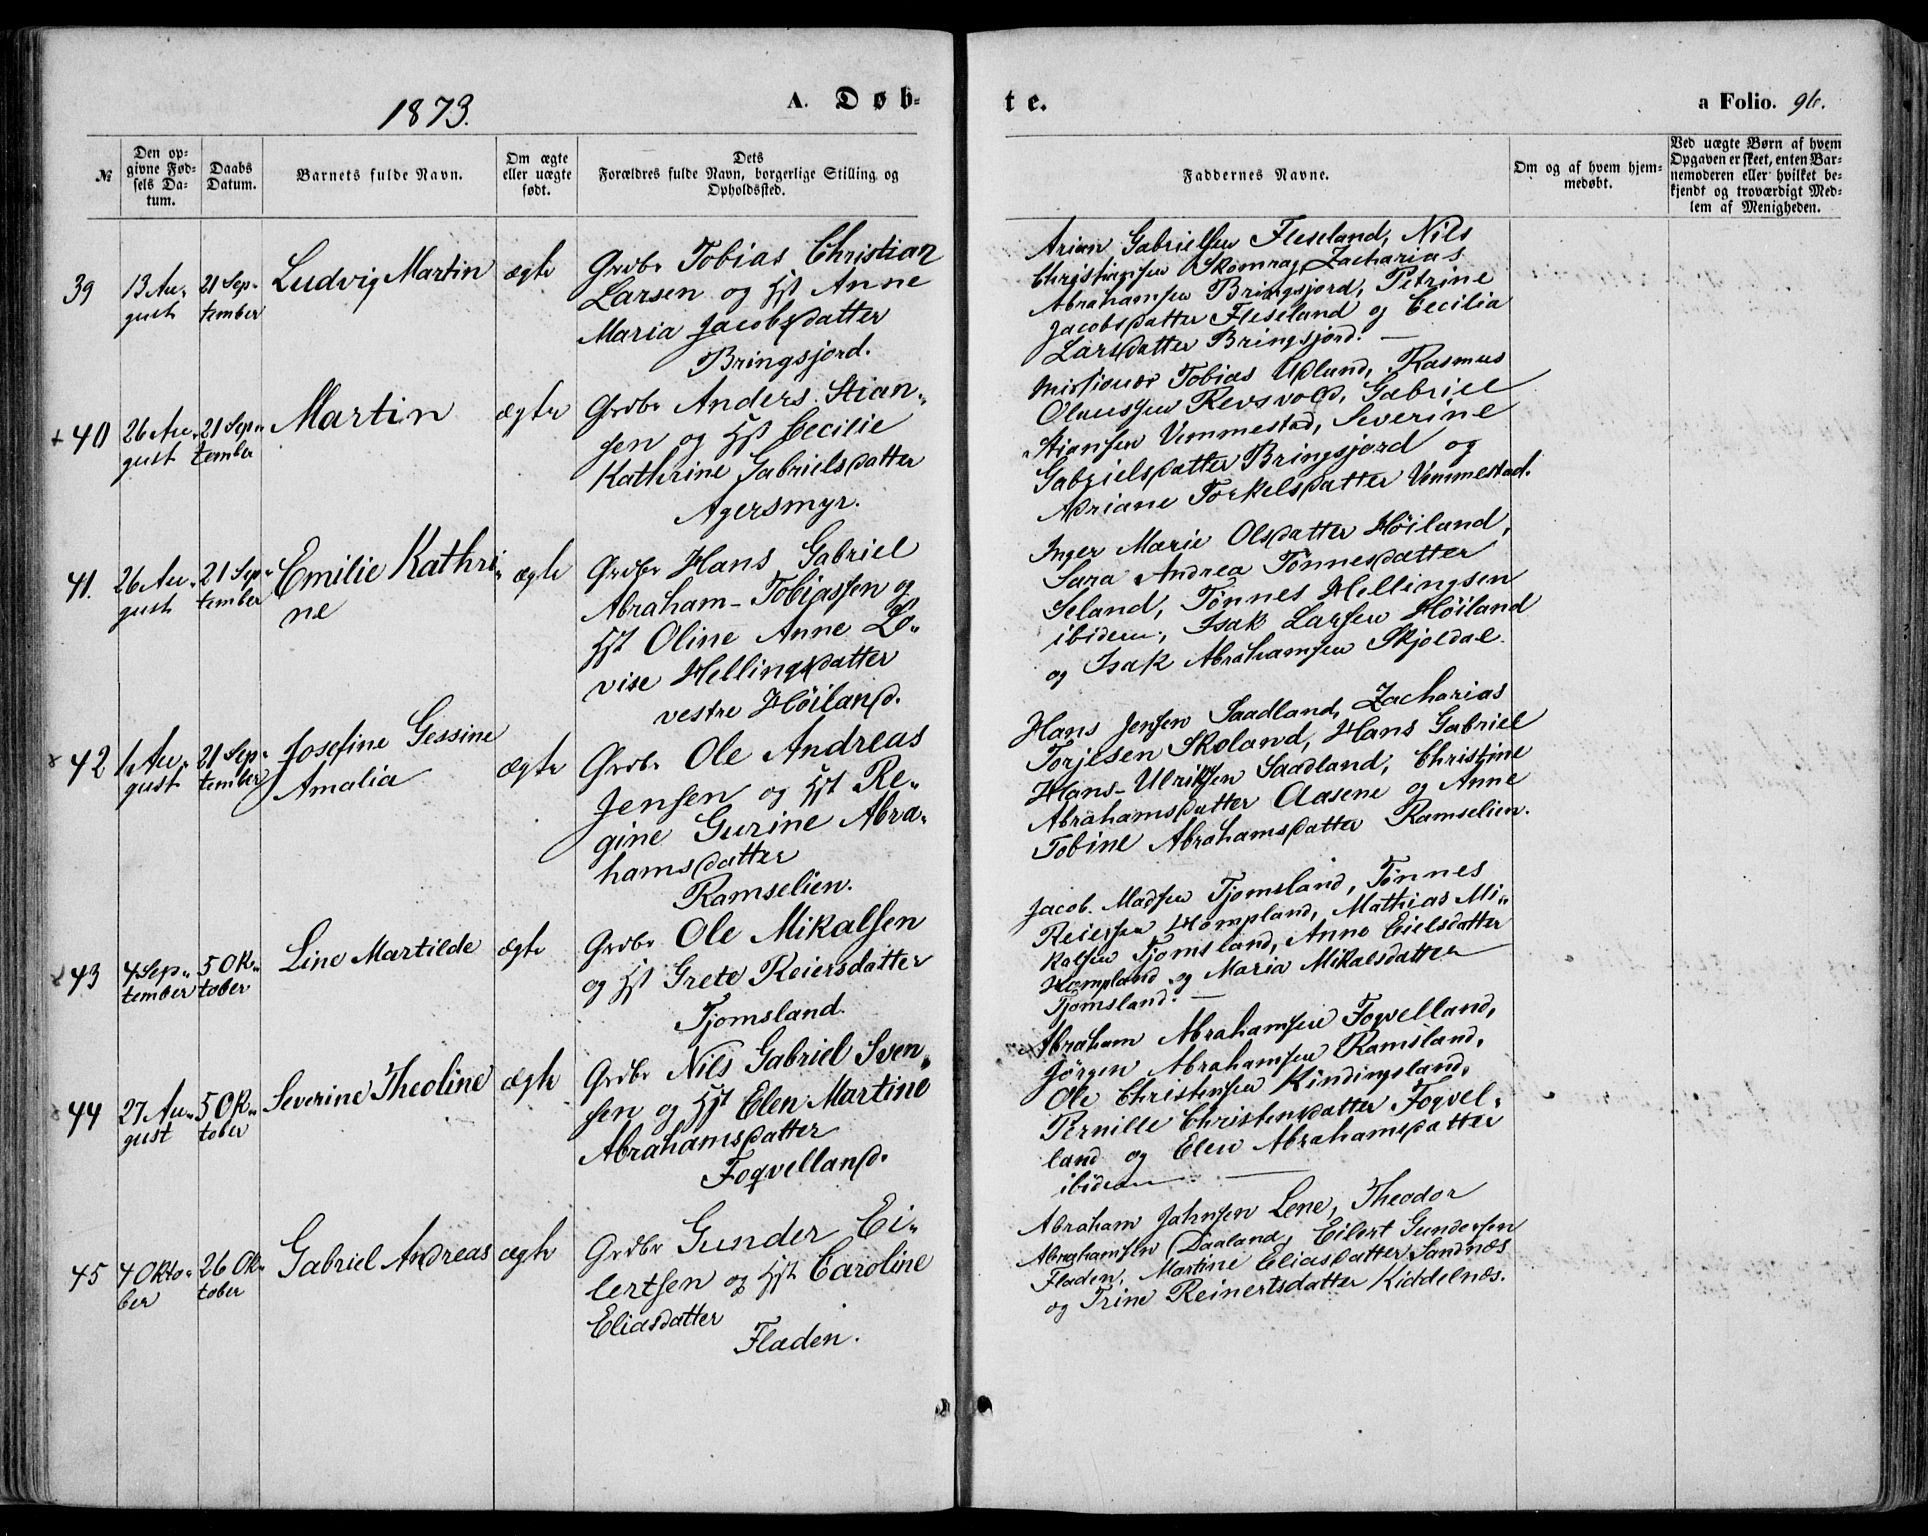 1873.
A. Døb-
te.
a Folio. 96.
№
Den op-
givne Fød-
sels Da-
tum.
Daabs
Datum.
Barnets fulde Navn.
Om ægte
eller uægte
født.
Dets
Forældres fulde Navn, borgerlige Stilling og
Opholdssted.
Faddernes Navne.
Om og af hvem hjem-
medøbt.
Ved uægte Børn af hvem
Opgaven er skeet, enten Bar-
nemoderen eller hvilket be-
kjendt og troværdigt Med-
lem af Menigheden.
39
13 Au-
gust
21 Sep-
tember
Ludvig Martin
ægte
Grdbr Tobias Christian
Larsen og Hst Anne
Maria Jacobsdatter
Bringsjord.
Arian Gabrielsen Fleseland, Nils
Christiansen Skomrag, Zacharias
Abrahamsen Bringsjord, Petrine
Jacobsdatter Fleseland og Cecilia
Larsdatter Bringsjord.
+ 40
26 Au-
gust
21 Sep-
tember
Martin
ægte
Grdbr Anders Stian-
sen og Hst Cecilie
Kathrine Gabrielsdatter
Agersmyr.
Missionær Tobias Udland, Rasmus
Olaussen Revsvold, Gabriel
Stiansen Vemmestad, Severine
Gabrielsdatter Bringsjord og
Adriane Torkelsdatter Vemmestad.
41.
26 Au-
gust
21 Sep-
tember
Emilie Kathri-
ne
ægte
Grdbr Hans Gabriel
Abraham-Tobiassen og
Hst Oline Anne Lo-
vise Hellingsdatter
vestre Höiland.
Inger Marie Olsdatter Höiland,
Sara Andrea Tönnesdatter
Seland, Tönnes Hellingsen
ibidem, Isak Larsen Höiland
og Isak Abrahamsen Skjoldal.
× 42
1 Au-
gust
21 Sep-
tember
Josefine Gessine
Amalia
ægte
Grdbr Ole Andreas
Jensen og Hst Re-
gine Gurine Abra-
hamsdatter
Ramselien.
Hans Jensen Saadland, Zacharias
Torjesen Skoland, Hans Gabriel
Hans-Ulriksen Saadland, Christine
Abrahamsdatter Aasene og Anne
Tobine Abrahamsdatter Ramselien.
× 43
4 Sep-
tember
5 Ok-
tober
Line Martilde
ægte
Grdbr Ole Mikalsen
og Hst Grete Reiersdatter
Tjomsland.
Jacob Madsen Tjomsland, Tönnes
Reiersen Hompland, Mathias Mi-
kalsen Tjomsland, Anne Eielsdatter
Hompland og Maria Mikalsdatter
Tjomsland.
× 44
27 Au-
gust
5 Ok-
tober
Severine Theoline
ægte
Grdbr Nils Gabriel Sven-
sen og Hst Elen Martine
Abrahamsdatter
Foqvelland.
Abraham Abrahamsen Foqvelland,
Jörgen Abrahamsen Ramsland,
Ole Christensen Kindingsland,
Pernille Christensdatter Foqvel-
land og Elen Abrahamsdatter
ibidem
45
4 Okto-
ber
26 Ok-
tober
Gabriel Andreas
ægte
Grdbr Gunder Ei-
lertsen og Hst Caroline
Eliasdatter
Fladen.
Abraham Jahnsen Lene, Theodor
Abrahamsen Daaland, Eilert Gundersen
Fladen, Martine Eliasdatter Sandnæs
og Trine Reinertsdatter Kiddelnæs.